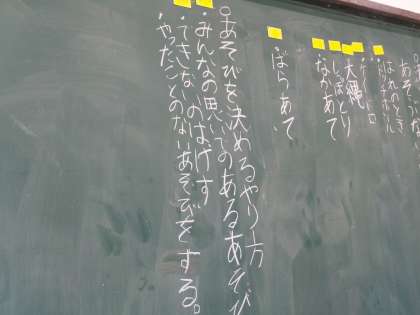 あそ
はれのとき
ドッチボール
大縄
しっぽとり
なかあて
・ばらあて
○あそびを決めるやり方
・みんなの思いでのあるあそび
・できな のはけす
・やったことのないあそびをする。